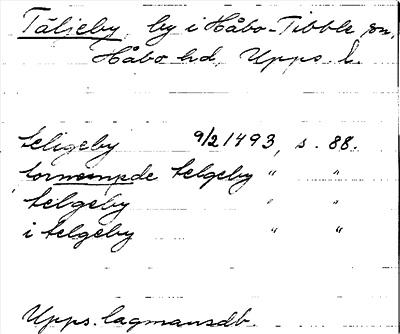 Täljeby, by i Håbo-Tibble sn,
Håbo hd, Upps. l.
teligeby 9/2 1493, s. 88.
tornempde telgeby " "
telgeby " "
i telgeby " "
Upps. lagmansdb.